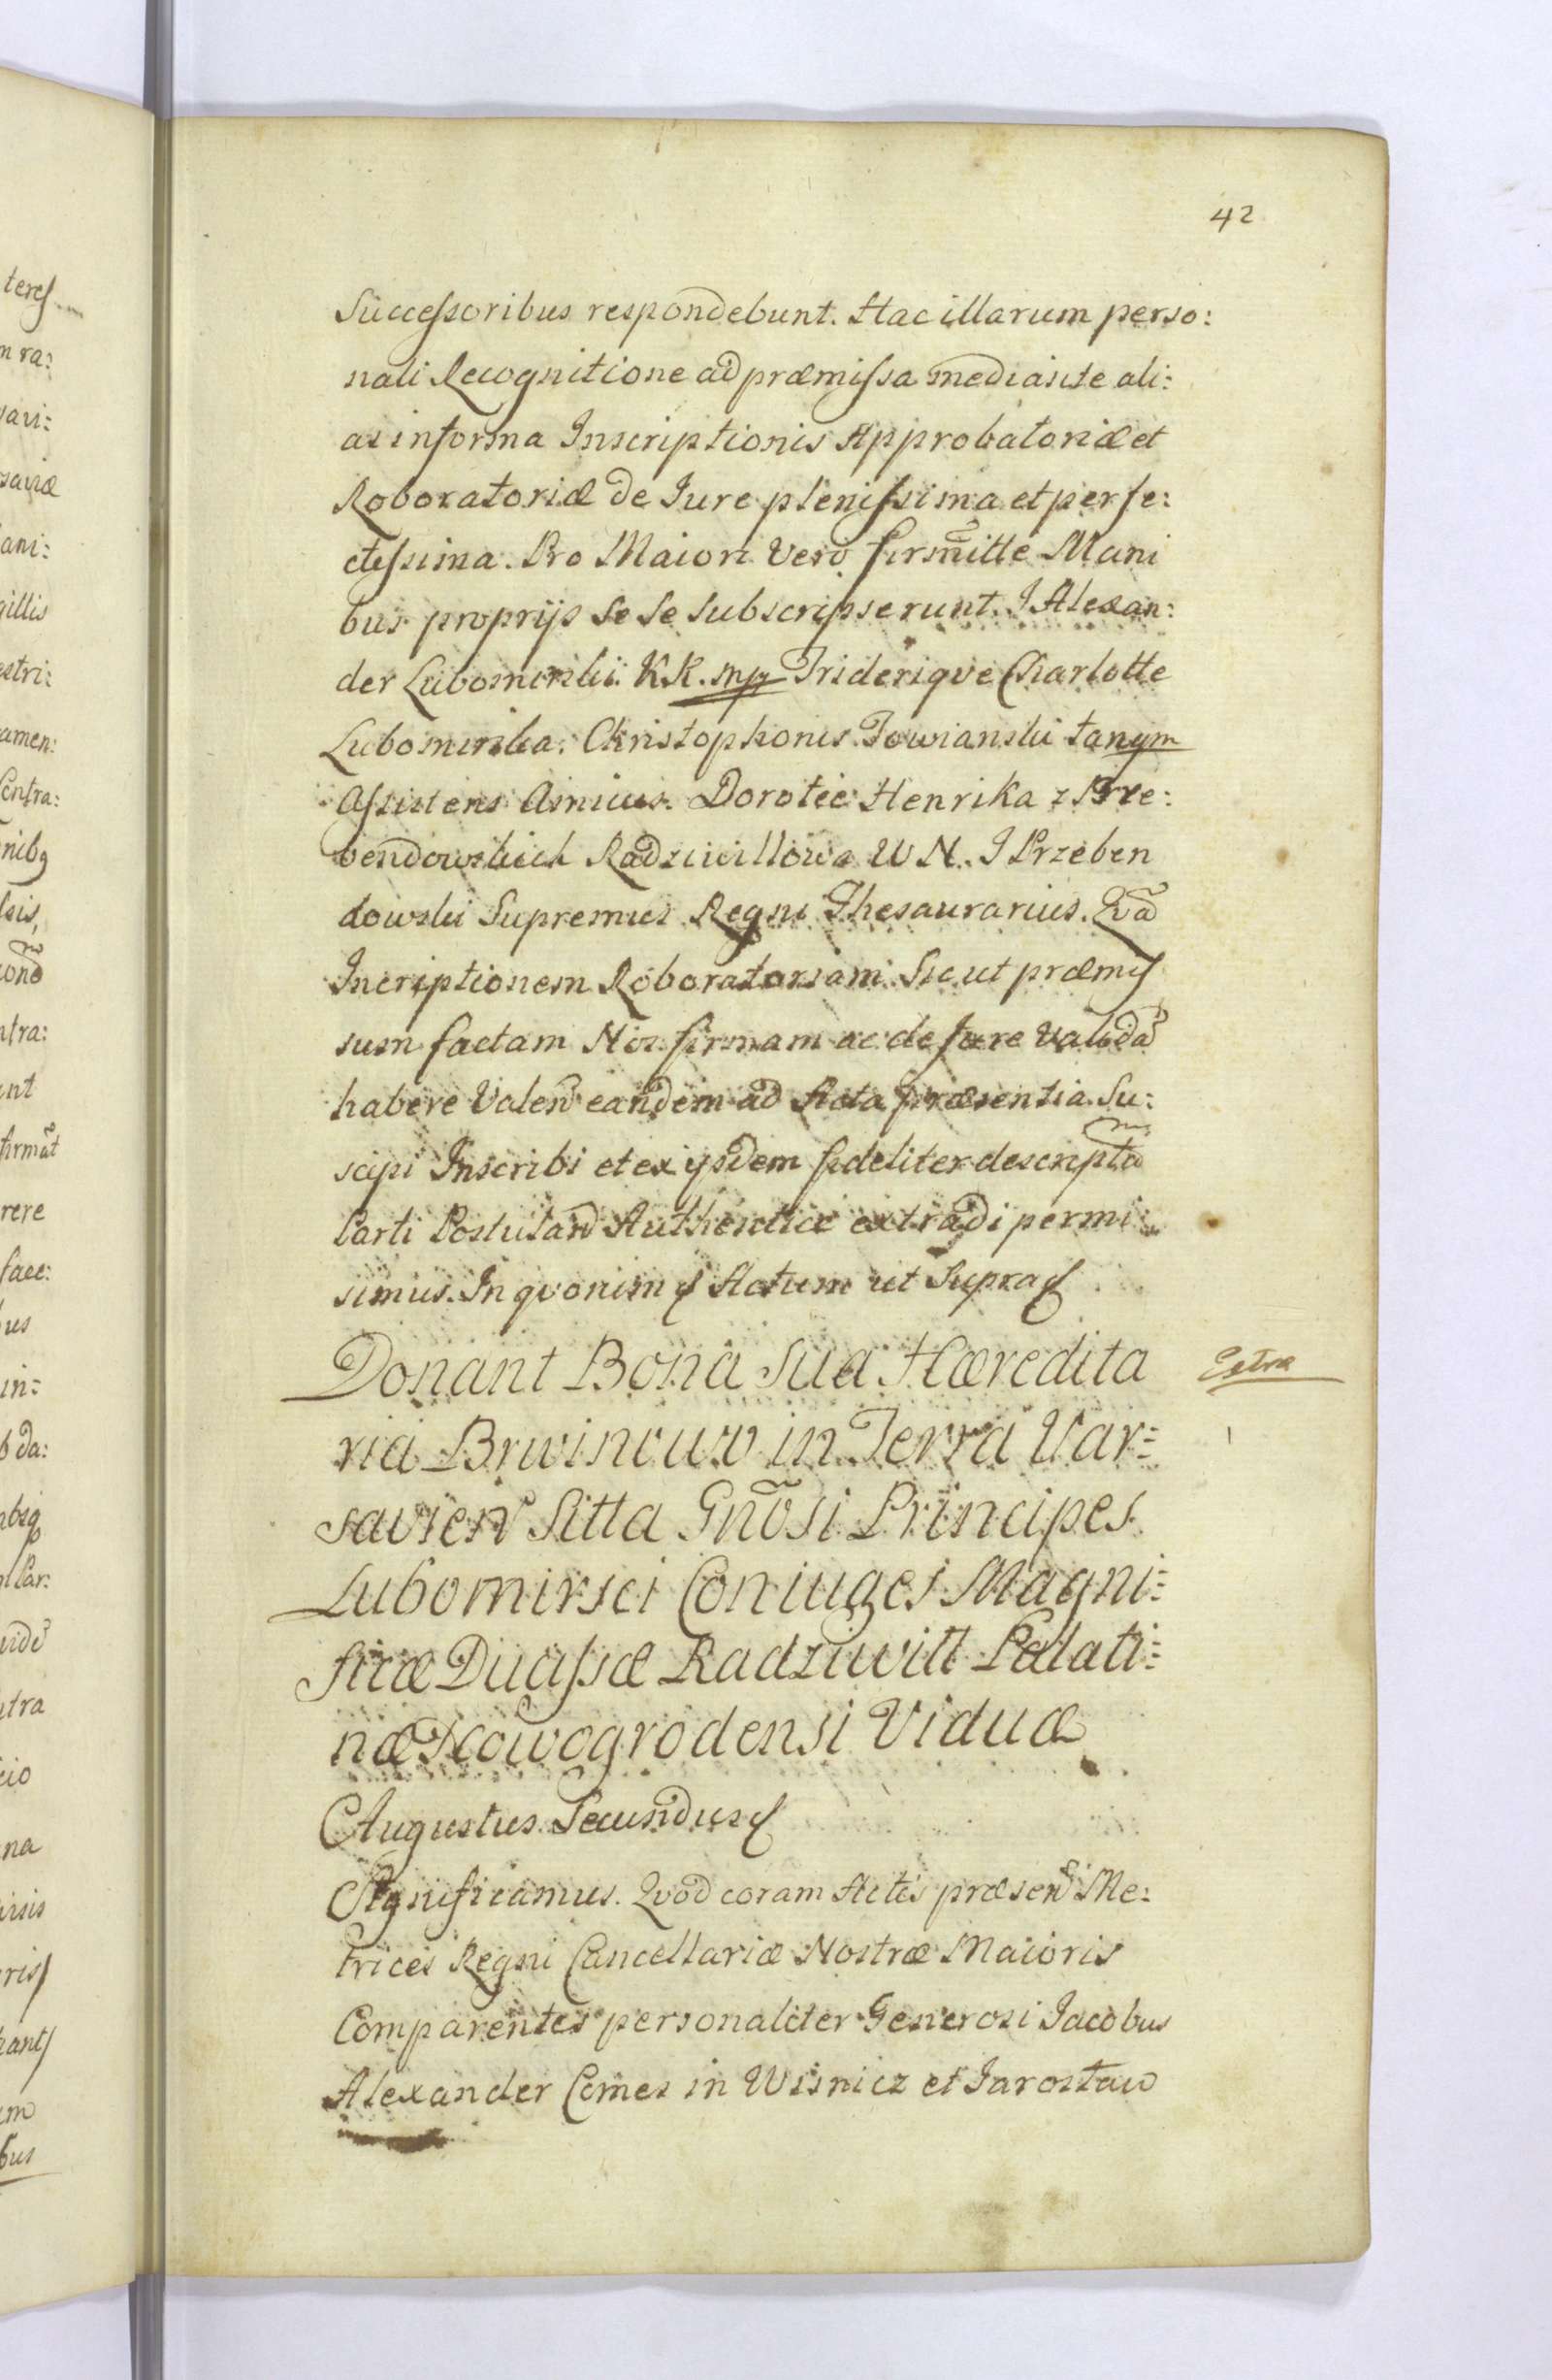 42
Successoribus respondebunt. Hac illarum perso:
nali Recognitione ad præmissa mediante ali:
as in forma Inscriptionis Approbatoriæ et
Roboratoriæ de Jure plenissima et perfe:
ctissima. Pro Maiori Vero firmitte Mani
bus proprijs Se Se Subscripserunt. J Alexan:
der Lubomirski KK. mp Friderique Charlotte
Lubomirska. Christophorus Towianski tanqm
Assistens Amicus. Dorotée Henrika z Prze:
bendowskich Radziwillowa W N. J Przeben
dowski Supremus Regni Thesaurarius. Qvã
Incriptionem Roboratoriam Sic ut præmis
sum factam Nos firmam ac de Jure Validã
habere Valen eandem ad Acta præsentia Su:
scipi Inscribi et ex ijsdem fideliter descriptã
Parti Postulan Authentice extradi permi:
simus. In qvorum Actum ut Supra
Donant Bona Sua Hæredita
ria Brwinouw in Terra Var=
savien Sitta Gnõsi Principes
Lubomirsci Coniuges Magni=
ficæ Ducissæ Radziwitt Palati=
næ Nowogrodensi Viduæ
Extra
Augustus Secundus
Significamus. Qvod coram Actis præsen Me:
trices Regni Cancellariæ Nostræ Maioris
Comparentes personaliter Generosi Jacobus
Alexander Comes in Wisnicz et Jarosław